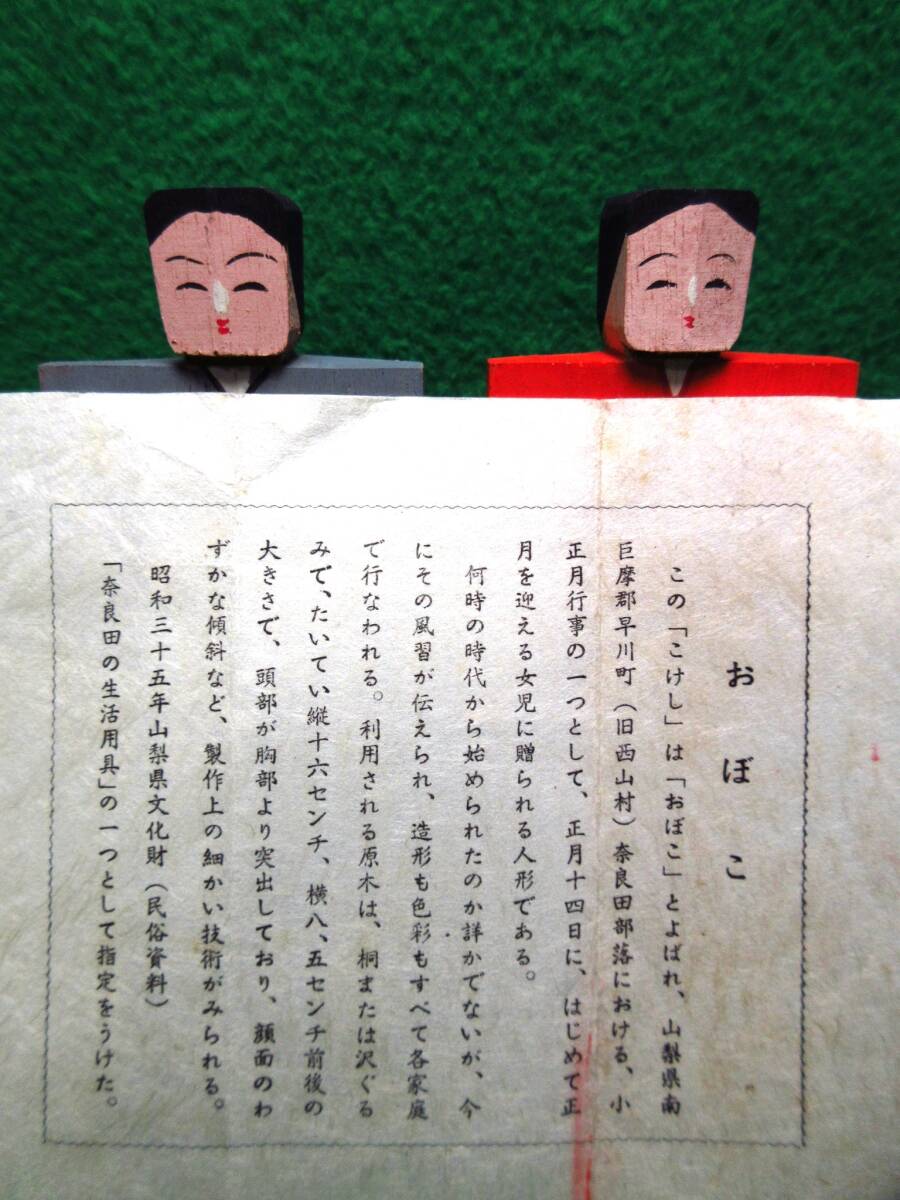 おぼこ
この「こけし」は「おぼこ」とよばれ、山梨県南
巨摩郡早川町（旧西山村）奈良田部落における、小
正月行事の一つとして、正月十四日に、はじめて正
月を迎える女児に贈られる人形である。
何時の時代から始められたのか詳かでないが、今
にその風習が伝えられ、造形も色彩もすべて各家庭
で行なわれる。利用される原木は、桐または沢ぐる
みで、たいてい縦十六センチ、横八、五センチ前後の
大きさで、頭部が胸部より突出しており、顔面のわ
ずかな傾斜など、製作上の細かい技術がみられる。
昭和三十五年山梨県文化財（民俗資料）
「奈良田の生活用具」の一つとして指定をうけた。